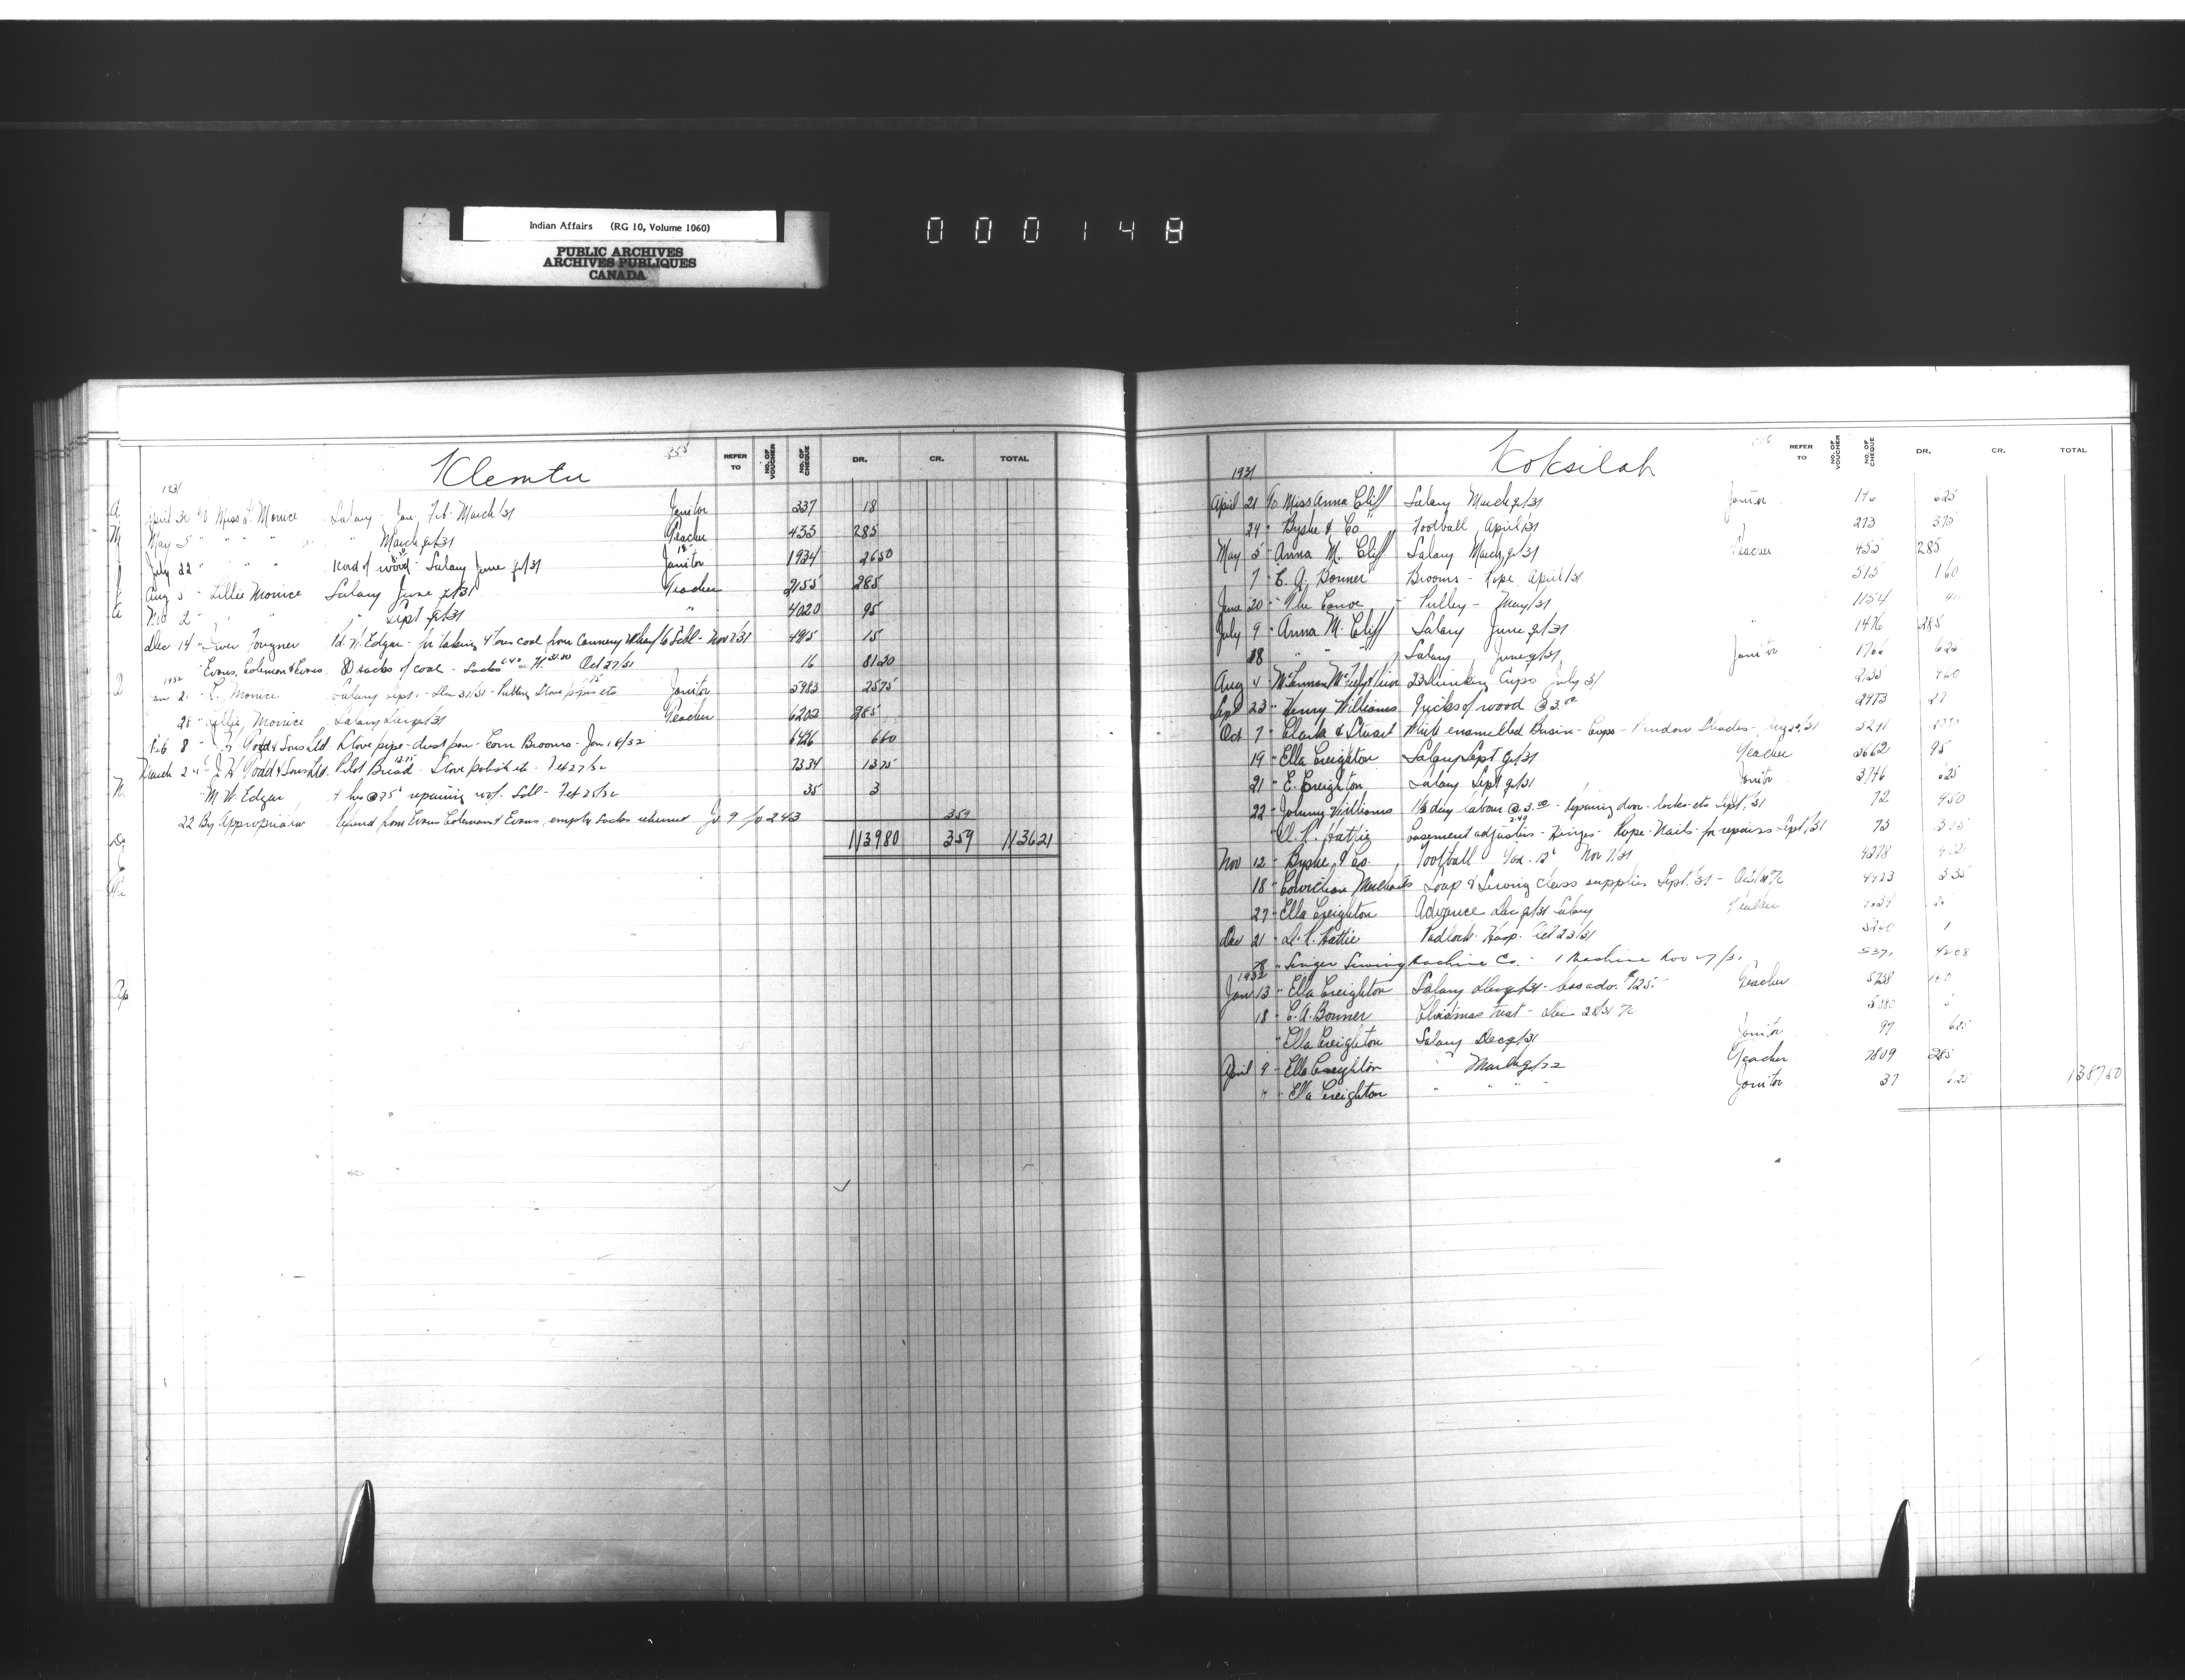 Indian Affairs (RG 10, Volume 1060)
PUBLIC ARCHIVES
ARCHIVES PUBLIQUES
CANADA
000148
Klemtu 355
REFER TO NO. OF VOUCHER NO. OF CHEQUE DR. CR. TOTAL
1931
April 30 To Miss L. Monice Salary Jan. Feb. March/31 Janitor 337 18
May 5 " " " " March qr/31 Teacher 433 285
July 22 " " " 1 cord of wood - Salary June qr/31 Janitor 1934 2650
Aug 5 " Lillie Monice Salary June qr/31 Teacher 2155 285
Nov 2 " " " Sept qr/31 " 4020 95
Dec 14 " Iver Fougner Pd. W. Edgar - for taking 4 tons coal from Cannery Wharf to Schl - Nov 7/31 4915 15
" Evans, Coleman & Evans 80 sacks of coal - Sacks Oct 27/31 16 8120
1932
Jan 2 " L. Monice Salary Sept - Dec 31/31 - Putting Stove pipes etc Janitor 5983 2575
28 " Lillie Monice Salary Dec qr/31 Teacher 6202 285
Feb 8 " J.H. Todd & Sons Ltd. Stove pipe - dust pan - Corn Brooms - Jan 16/32 6426 660
March 2 " J.H. Todd & Sons Ltd. Pilot Bread Stove polish etc - Feb 27/32 7334 1375
" M. W. Edgar 4 hrs @ 75¢ repairing roof - Schl - Feb 25/32 35 3
22 By Appropriation Refund from Evans Coleman & Evans, empty sacks returned Jr. 9 fo 243 359
113980 359 113621
Koksilah
REFER TO NO. OF VOUCHER NO. OF CHEQUE DR. CR. TOTAL
1931
April 21 To Miss Anna Cliff Salary March qr/31 Janitor 625
24 " Byshe & Co Football April/31 273 375
May 5 " Anna M. Cliff Salary March qr/31 Teacher 455 285
7 " E. A. Bonner Brooms - Rope April/31 515 160
June 20 " The Canoe Pulley - May/31 1154 40
July 9 " Anna M. Cliff Salary June qr/31 " 1476 285
18 " " " Salary June qr/31 Janitor 625
Aug 4 " 23 Drinking Cups July/31 460
Sept 23 " Henry Williams 9 ricks of wood @ 3.00 2973 27
Oct 7 " Clark & Stuart White enamelled Basin - Cups - Window Shades - 3271
19 " Ella Creighton Salary Sept qr/31 Teacher 3662 95
21 " E. Creighton Salary Sept qr/31 Janitor 3746 625
22 " Johnny Williams 1½ day labour @ 3.00 - repairing door - locks etc Sept/31 72 450
" D. R. Hattie Casement adjusters - Hinges - Rope - Nails - for repairs Sept/31 73 315
Nov 12 " Byshe & Co. Football Nov 7/31 4278
18 " Cowichan Merchants Soap & Sewing class supplies Sept/31 - 4423 335
27 " Ella Creighton Advance Dec qr/31 Salary Teacher
Dec 21 " D. R. Hattie Padlock - Hasp - Oct 23/31 5240 1
" Singer Sewing Machine Co. - 1 Machine Nov 4208
1932
Jan 13 " Ella Creighton Salary Dec qr/31 - less adv. $125.- Teacher 5738 160
18 " E. A. Bonner Christmas treat - Dec 5880 5
" Ella Creighton Salary Dec qr/31 Janitor 97 625
April 9 " Ella Creighton " March qr/32 Teacher 7809 285
" " Ella Creighton " " " Janitor 37 625 138750